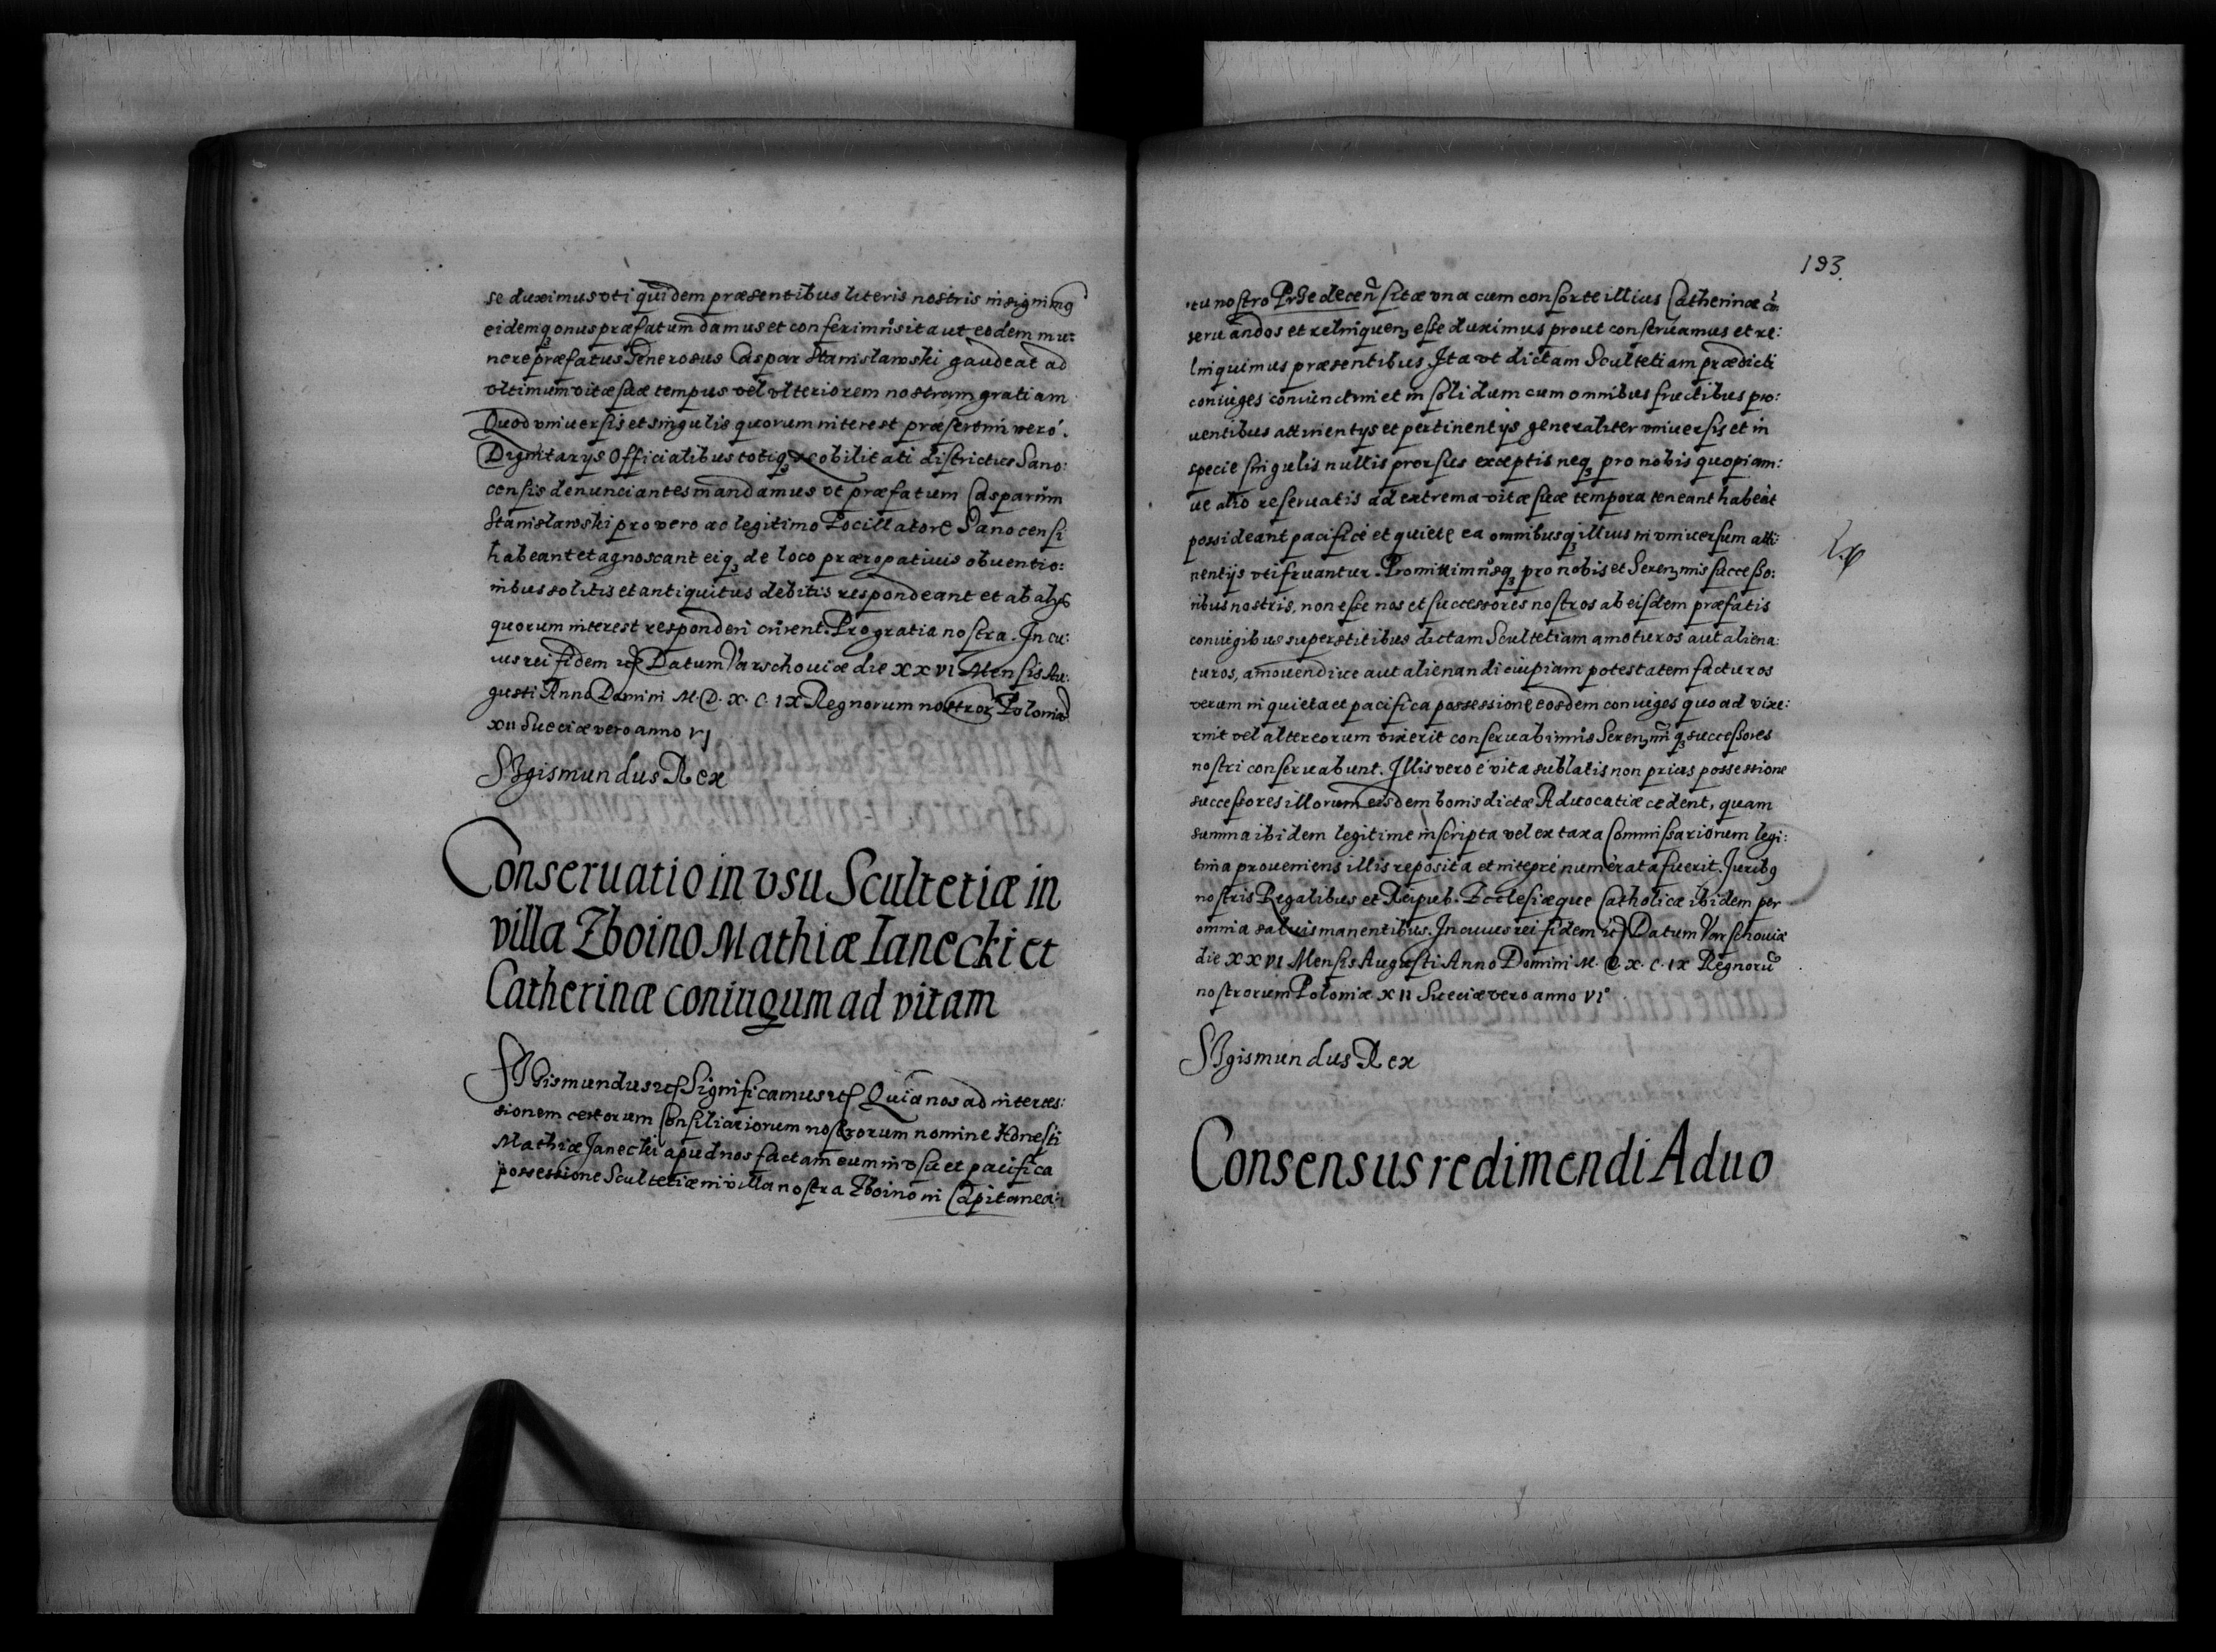 se duximus vti quidem præsentibus literis nostris insignimꝰ
eidemqꝫ onus præfatum damus et conferimus ita ut eodem mu:
nere præfatus Generosus Caspar Stanislawski gaudeat ad
vltimum vitæ suæ tempus vel vlteriorem nostram gratiam
Quod vniuersis et singulis quorum interest præsertim verò.
Dignitarys Officialibus totiqꝫ Nobilitati districtus Sano:
censis denunciantes mandamus vt præfatum Casparum
Stanislawski pro vero ac legitimo Pocillatore Sanocensi
habeant et agnoscant eiqꝫ de loco prærogatiuis obuentio:
nibus solitis et antiquitus debitis respondeant et ab alys
quorum interest responderi curent. Pro gratia nostra. In cu:
ius rei fidem etc Datum Varschouiæ die XXVI Mensis Au:
gusti Anno Domini M. D. X. C. IX Regnorum nostrorꝫ Poloniæ
XII Sueciæ vero anno VI
Sigismundus Rex
Conseruatio in vsu Scultetiæ in
villa Zboino Mathiæ Ianecki et
Catherinæ coniugum ad vitam
Sigismundus etc Significamus etc Quia nos ad interces:
sionem certorum Consiliariorum nostrorum nomine Honesti
Mathiæ Janecki apud nos factam eum in vsu et pacifica
possessione Scultetiæ in villa nostra Zboino in Capitanea:
193.
tu nostro Przedecen̄ sitæ vna cum consorte illius Catherinæ cō
seruandos et relinquenꝫ esse duximus prout conseruamus et re:
linquimus præsentibus Ita vt dictam Scultetiam prædicti
coniuges coniunctim et in solidum cum omnibus fructibus pro:
uentibus attinentys et pertinentys generaliter vniuersis et in
specie singulis nullis prorsus exceptis neqꝫ pro nobis quopiam:
ue alio reseruatis ad extrema vitæ suæ tempora teneant habeāt
possideant pacificè et quietè ea omnibusqꝫ illius in vniuersum atti:
nentijs vti fruantur. Promittimusqꝫ pro nobis et Serenꝫmis successo:
ribus nostris, non esse nos et successores nostros ab eisdem præfatis
coniugibus superstitibus dictam Scultetiam amoturos aut aliena:
turos, amouendiue aut alienandi cuipiam potestatem facturos
verum in quieta et pacifica possessione eosdem coniuges quo ad vixe:
rint vel alter eorum vixerit conseruabimus Serenꝫmiqꝫ successores
nostri conseruabunt. Illis vero è vita sublatis non prius possessione
successores illorum eisdem bonis dictæ Aduocatiæ cedent, quam
summa ibidem legitime inscripta vel ex taxa Commissariorum legi:
tima proueniens illis reposita et integrè numerata fuerit. Juribꝰ
nostris Regalibus et Reipub. Ecclesiæque Catholicæ ibidem per
omnia saluis manentibus. In cuius rei fidem etc Datum Varschouiæ
die XXVI Mensis Augusti Anno Domini M. D. X. C. IX Regnorū
nostrorum Poloniæ XII Sueciæ vero anno VI°
Sigismundus Rex
Consensus redimendi Aduo